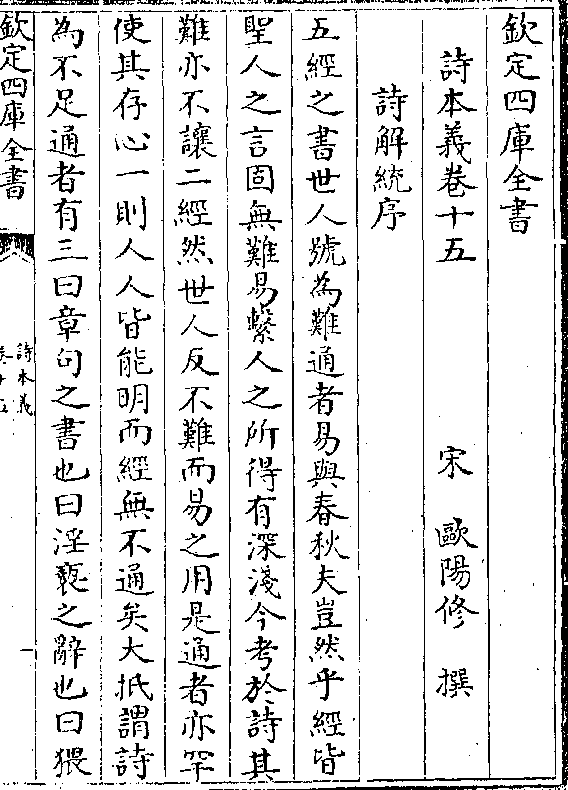 欽定四庫全書
詩本義卷十五
宋 歐陽修 撰
詩解統序
五經之書世人號為難通者易與春秋夫豈然乎經皆
聖人之言固無難易繫人之所得有深淺今考於詩其
難亦不讓二經然世人反不難而易之用是通者亦罕
使其存心一則人人皆能明而經無不通矣大抵謂詩
為不足通者有三曰章句之書也曰淫䙝之辭也曰猥
欽定四庫全書
詩本義
卷十五
一